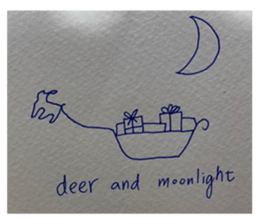 deer and moonlight